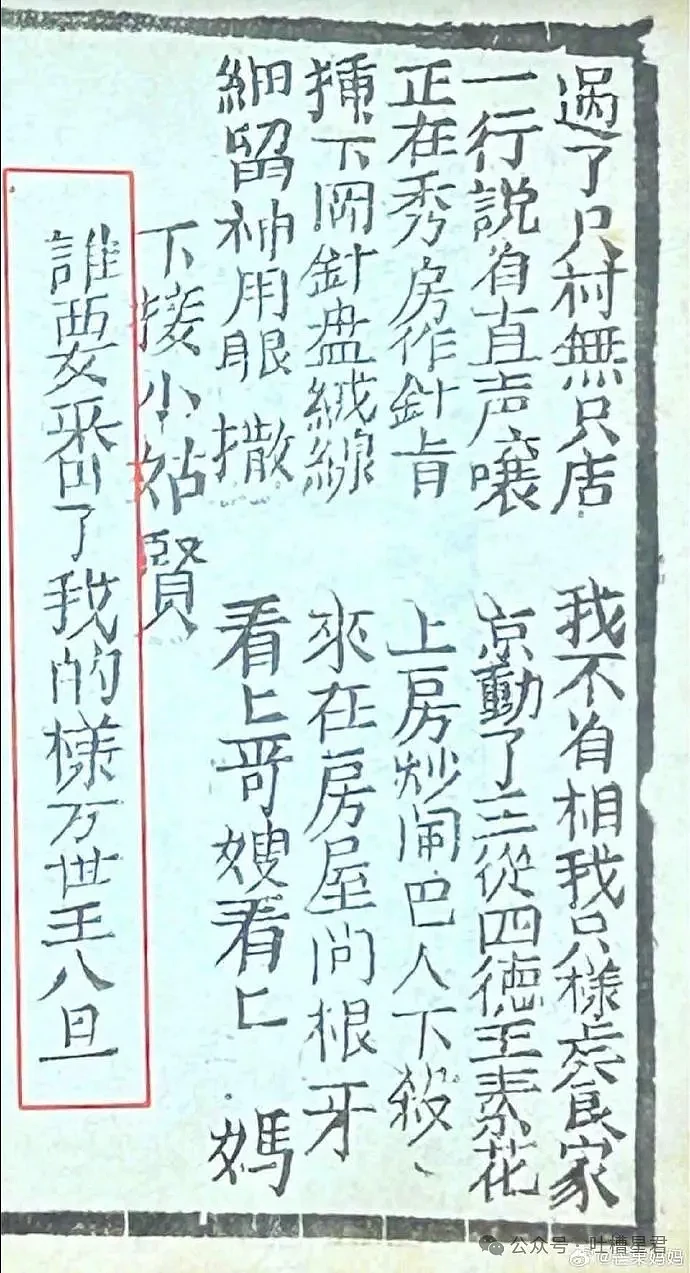 過了只村無只店 我不省相我只樣家
一行說省直声嚷 京動了三從四德王素花
正在秀房作針肯 上房炒闹巴人下殺、
下岡針盘絨線 來在房屋问根牙
細留神用眼撒 看匕哥嫂看匕媽
下接小姑賢
誰要番了我的樣万世王八旦
公众号·吐槽星君
@芒果妈妈